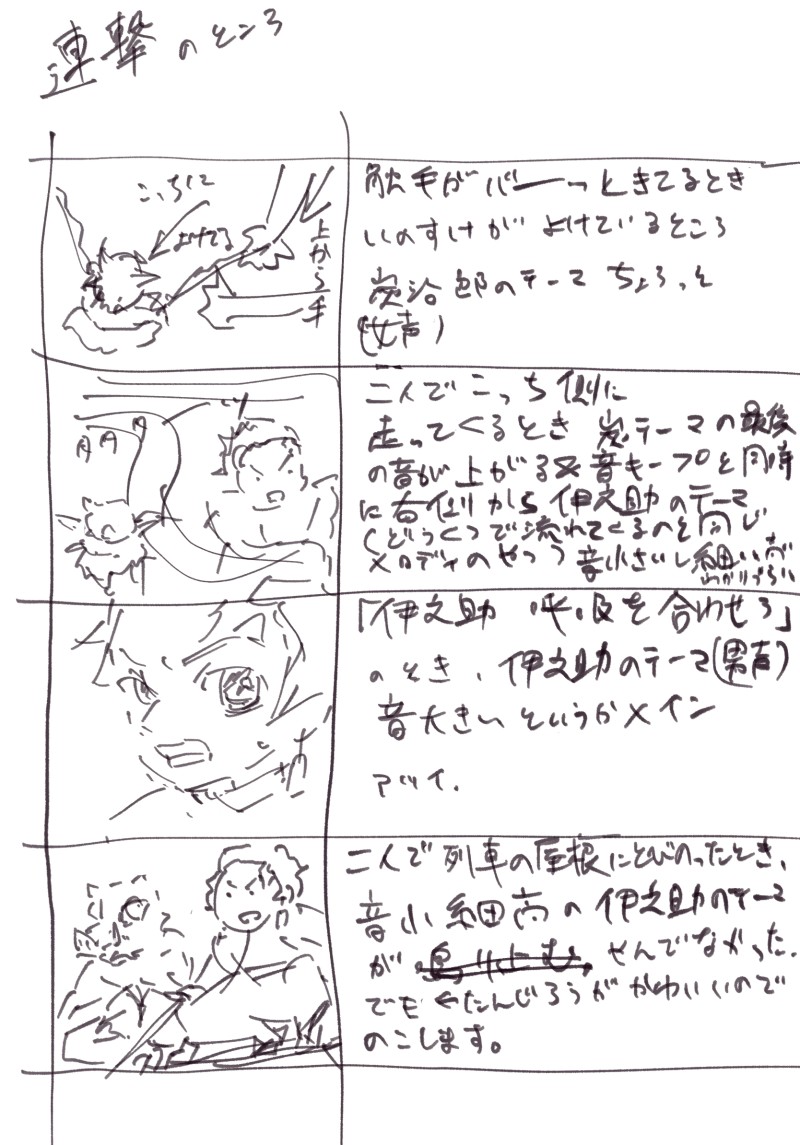 連撃のところ
こっちに
よけてる
上から手
触手がバーーっときてるとき
いのすけがよけているところ
炭治郎のテーマちょろっと
(女声)
二人でこっち側に
走ってくるとき 炭テーマの最後
の音が上がる 音キープと同時
に右側から伊之助のテーマ
(どうくつで流れてくるのと同じ
メロディのやつ) 音小さいし細い高
わかりづらい
タタタ
「伊之助 呼吸を合わせろ」
のとき、伊之助のテーマ(男声)
音大きいというかメイン
アツイ.
二人で列車の屋根にとびのったとき、
音小 細 高の伊之助のテーマ
が 鳴り止む、せんでなかった.
でも←たんじろうがかわいいので
のこします。